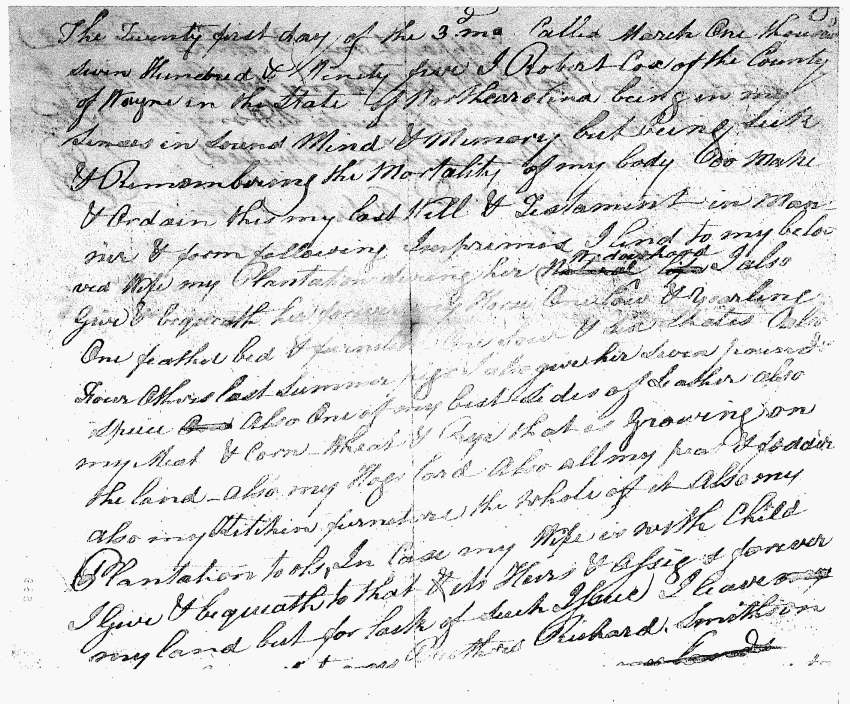 The Twenty first day of the 3d mo Called March One thousand
Seven Hundred & Ninety five I Robert Cox of the County
of Wayne in the State of Northcarolina being in my
Sences in Sound Mind & Memory but being Sick
& Remembering the Mortality of my body Doo Make
& Ordain this my last Will & Testament in Man
ner & form following Imprimes I lend to my belo
ved Wife my Plantation during her Widowhood I also
Give & bequeath her forever my Horse One Cow & Yearling
One feather bed & furniture One Sow & Six Shotes Also
Four Others last Summer pigs I also give her Seven pounds
Specie Also One of my best Sides of Leather also
my Meat & Corn Wheat & Rye that is Growing on
the land also my Hogs lard Also all my & fodder
also my Kitchin furneture the whole of it Also my
Plantation tools, In Case my Wife is with Child
I Give & bequeath to that & its Heirs & Assigns forever
my land but for lack of Such Issue I leave
my Brothers Richard, Smithson